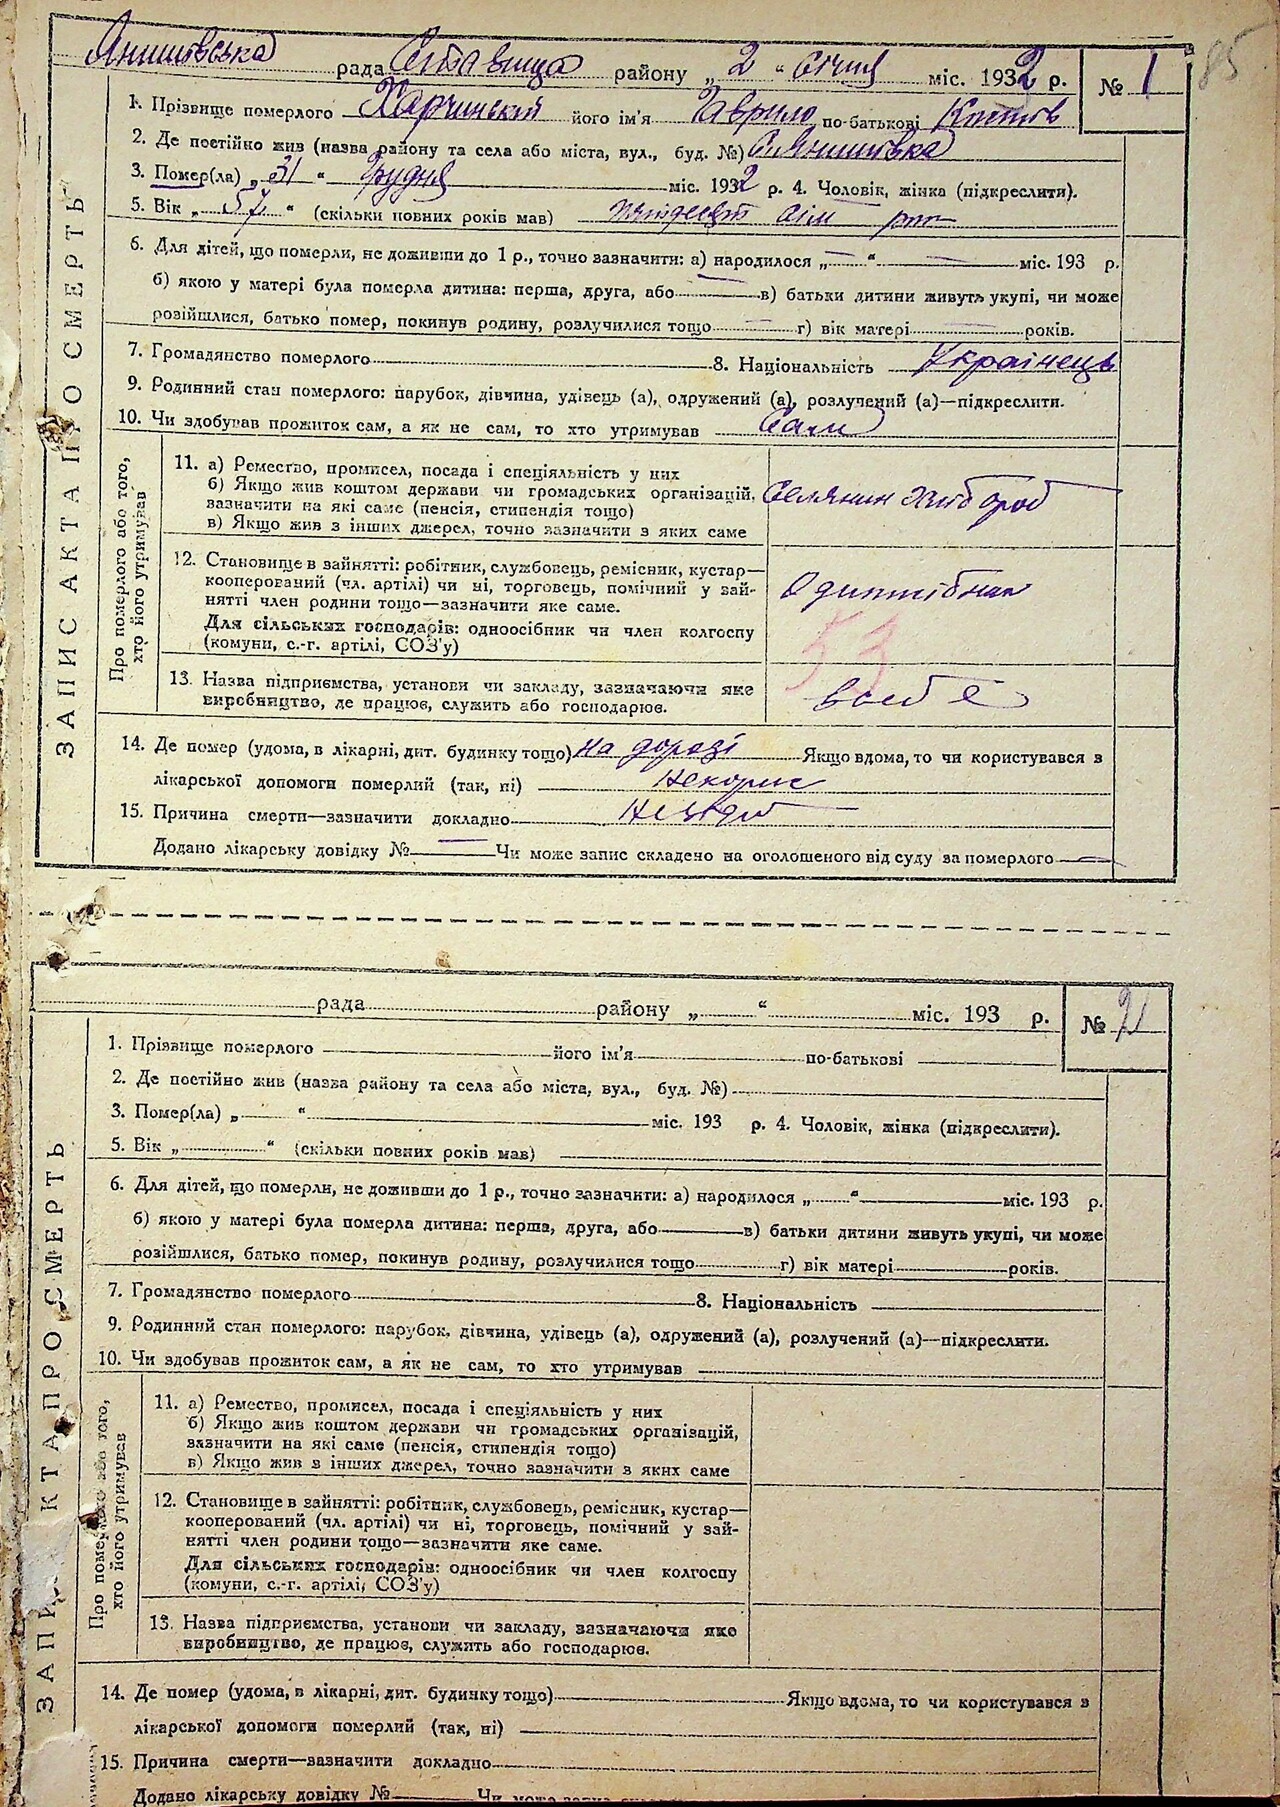 85
Янишівська рада Ставища району „ 2 “ січня міс. 1932 р. № 1
1. Прізвище померлого Харчинский його ім'я Гаврило по-батькові
2. Де постійно жив (назва району та села або міста, вул., буд. №) с. Янишівка
3. Помер(ла) „ 31 “ Грудня міс. 1932 р. 4. Чоловік, жінка (підкреслити).
5. Вік „ 57 “ (скільки повних років мав) пятдесят сім
6. Для дітей, що померли, не доживши до 1 р., точно зазначити: а) народилося „ — “ — міс. 193 р.
б) якою у матері була померла дитина: перша, друга, або — в) батьки дитини живуть укупі, чи може
розійшлися, батько помер, покинув родину, розлучилися тощо — г) вік матері — років.
7. Громадянство померлого 8. Національність Українець
9. Родинний стан померлого: парубок, дівчина, удівець (а), одружений (а), розлучений (а)—підкреслити.
10. Чи здобував прожиток сам, а як не сам, то хто утримував Сам
ЗАПИС АКТА ПРО СМЕРТЬ
Про померлого або того,
хто його утримував
11. а) Ремество, промисел, посада і спеціяльність у них
б) Якщо жив коштом держави чи громадських організацій,
зазначити на які саме (пенсія, стипендія тощо)
в) Якщо жив з інших джерел, точно зазначити з яких саме
Селянин хлібороб
12. Становище в зайнятті: робітник, службовець, ремісник, кустар—
кооперований (чл. артілі) чи ні, торговець, помічний у зай-
нятті член родини тощо—зазначити яке саме.
Для сільських господарів: одноосібник чи член колгоспу
(комуни, с.-г. артілі, СОЗ'у)
Одноосібник
53
13. Назва підприємства, установи чи закладу, зазначаючи яке
виробництво, де працює, служить або господарює.
в себе
14. Де помер (удома, в лікарні, дит. будинку тощо) на дорозі Якщо вдома, то чи користувався з
лікарської допомоги померлий (так, ні) некорис
15. Причина смерти—зазначити докладно невідо
Додано лікарську довідку № — Чи може запис складено на оголошеного від суду за померлого —
рада району „ “ міс. 193 р. № 2
1. Прізвище померлого його ім'я по-батькові
2. Де постійно жив (назва району та села або міста, вул., буд. №)
3. Помер(ла) „ “ міс. 193 р. 4. Чоловік, жінка (підкреслити).
5. Вік „ “ (скільки повних років мав)
6. Для дітей, що померли, не доживши до 1 р., точно зазначити: а) народилося „ “ міс. 193 р.
б) якою у матері була померла дитина: перша, друга, або в) батьки дитини живуть укупі, чи може
розійшлися, батько помер, покинув родину, розлучилися тощо г) вік матері років.
7. Громадянство померлого 8. Національність
9. Родинний стан померлого: парубок, дівчина, удівець (а), одружений (а), розлучений (а)—підкреслити.
10. Чи здобував прожиток сам, а як не сам, то хто утримував
ЗАПИ КТ А ПРО СМЕРТЬ
Про померлого або того,
хто його утримував
11. а) Ремество, промисел, посада і спеціяльність у них
б) Якщо жив коштом держави чи громадських організацій,
зазначити на які саме (пенсія, стипендія тощо)
в) Якщо жив з інших джерел, точно зазначити з яких саме
12. Становище в зайнятті: робітник, службовець, ремісник, кустар—
кооперований (чл. артілі) чи ні, торговець, помічний у зай-
нятті член родини тощо—зазначити яке саме.
Для сільських господарів: одноосібник чи член колгоспу
(комуни, с.-г. артілі, СОЗ'у)
13. Назва підприємства, установи чи закладу, зазначаючи яке
виробництво, де працює, служить або господарює.
14. Де помер (удома, в лікарні, дит. будинку тощо) Якщо вдома, то чи користувався з
лікарської допомоги померлий (так, ні)
15. Причина смерти—зазначити докладно
Додано лікарську довідку № Чи може запис